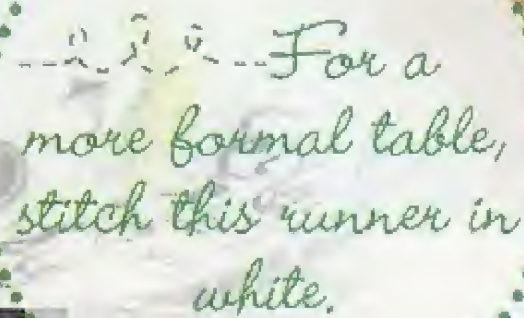 For a
more formal table,
stitch this runner in
white.